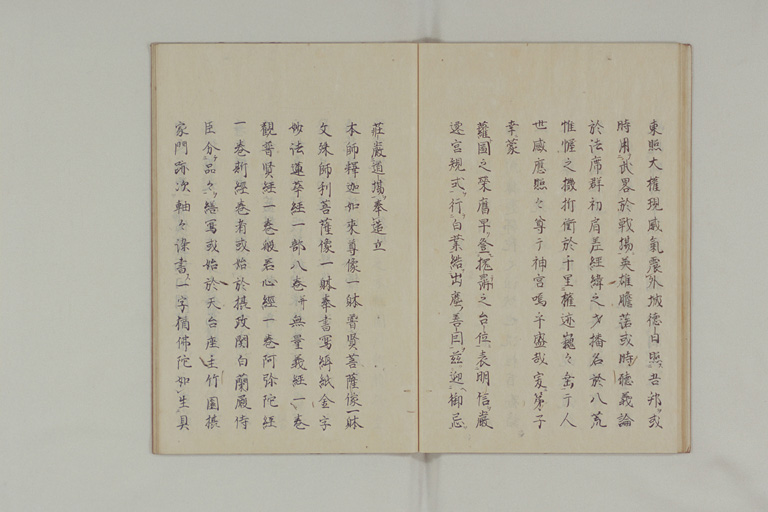 東照大權現威氣震外域德日照吾邦或
時用武畧於戰場英雄膽落或時聴義論
於法席群初肩差經緯之才播名於八荒
帷幄之機衡於千里權迹巍々焉于人
世威應照々尊于神宮嗚乎盛哉爰弟子
幸蒙
蘿圖之榮膺早登槐鼎之台位表明信嚴
遷宮規式行白業結出應善因茲迎御忌
莊嚴道場奉造立
本師釋迦如來尊像一躰普賢菩薩像一躰
文殊師利菩薩像一躰奉書寫紺紙金字
妙法蓮華經一部八卷幷無量義經一卷
觀普賢經一卷般若心經一卷阿弥陀經
一卷斯經卷者或始於摂政關白蘭厳侍
臣分品々繕寫或始於天台座主竹園振
家門跡次軸々染書一字猶佛陀如生具